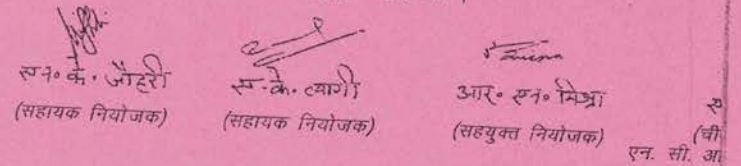 एन० के० जौहरी
(सहायक नियोजक)
एस. के. त्यागी
(सहायक नियोजक)
आर. एन. मिश्रा
(सहयुक्त नियोजक)
एन. सी. आ